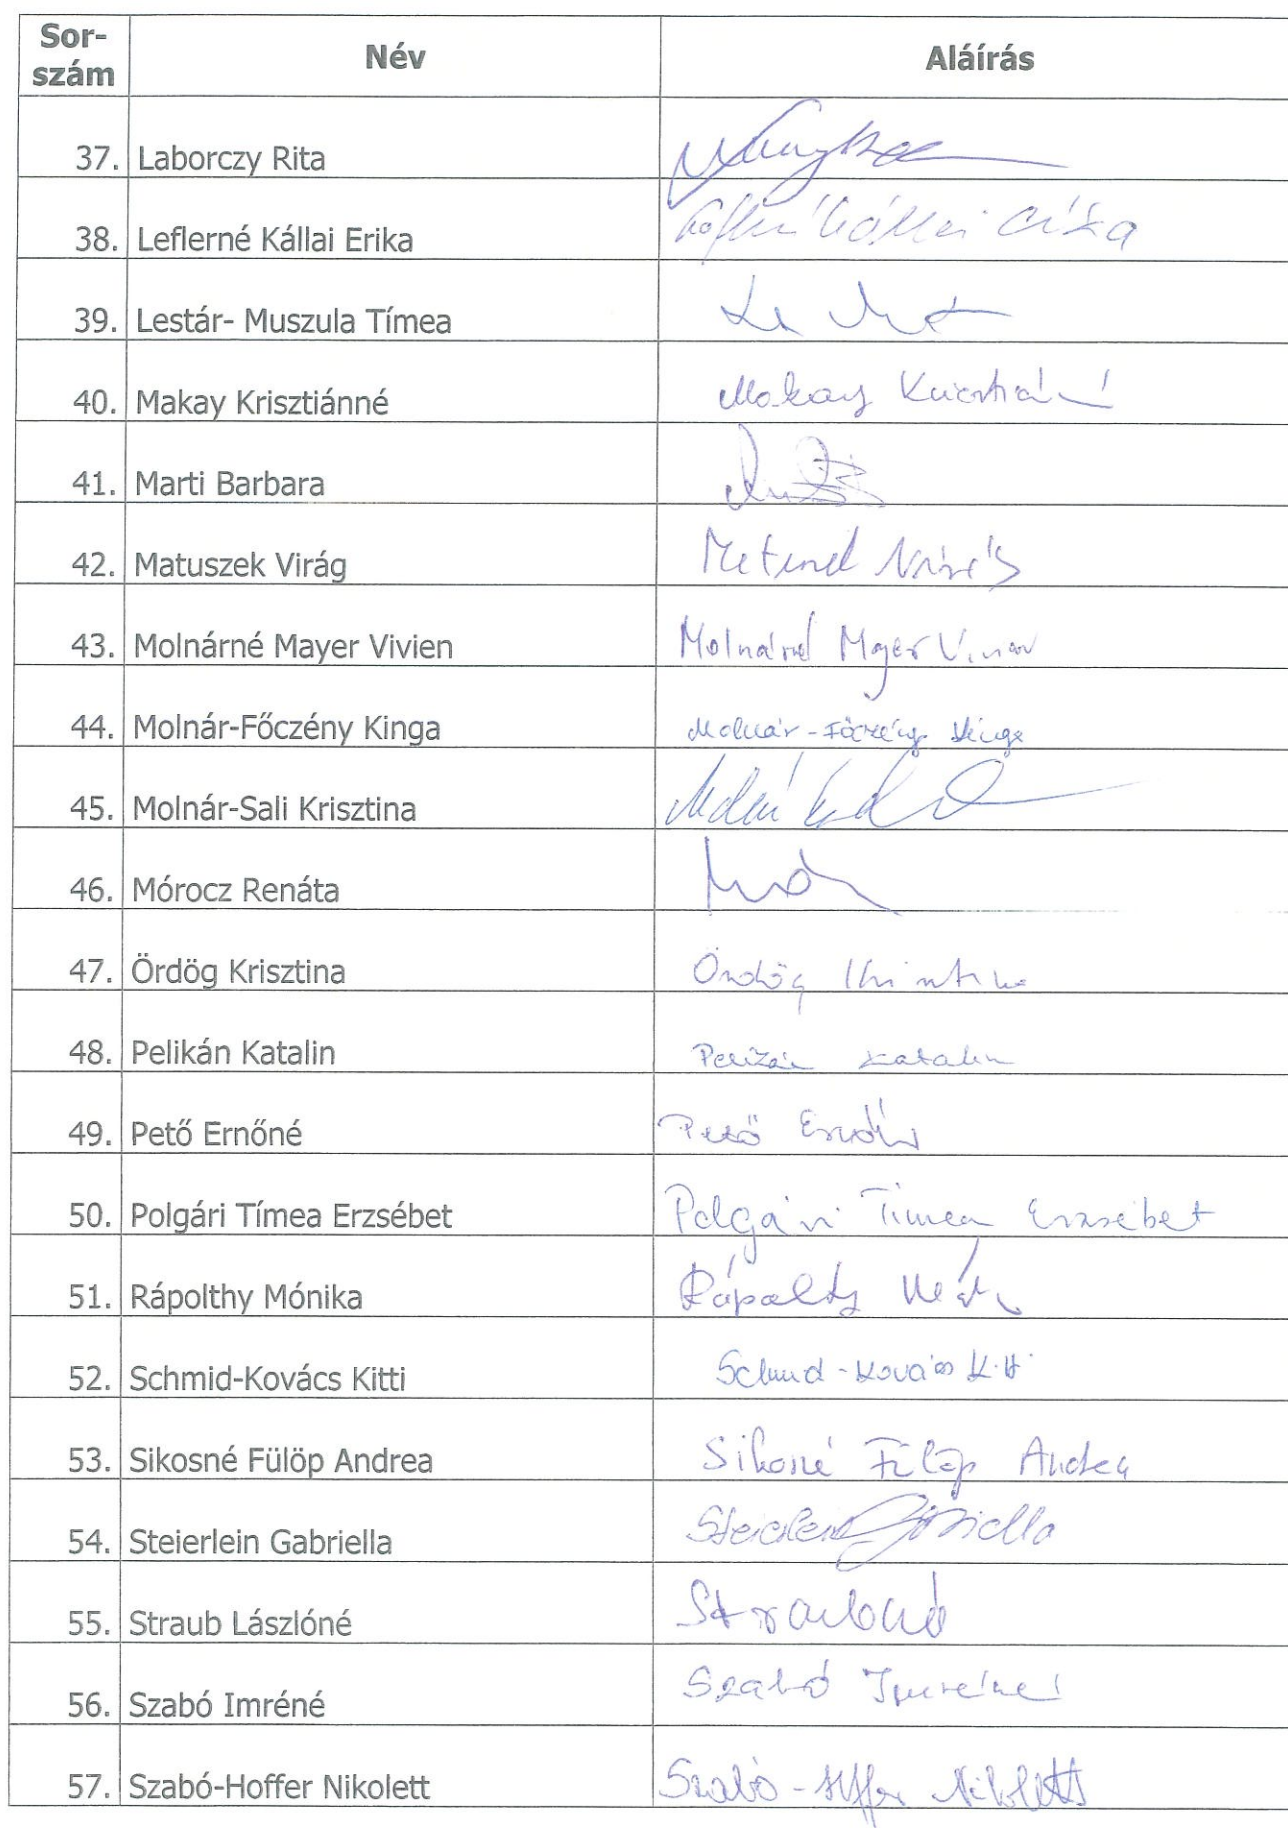 Sor-
szám Név Aláírás
37. Laborczy Rita
38. Leflerné Kállai Erika
39. Lestár- Muszula Tímea
40. Makay Krisztiánné Makay Krisztiánné
41. Marti Barbara
42. Matuszek Virág
43. Molnárné Mayer Vivien Molnárné Mayer Vivien
44. Molnár-Főczény Kinga Molnár-Főczény Kinga
45. Molnár-Sali Krisztina
46. Mórocz Renáta
47. Ördög Krisztina Ördög Krisztina
48. Pelikán Katalin Pelikán Katalin
49. Pető Ernőné Pető Ernőné
50. Polgári Tímea Erzsébet Polgári Tímea Erzsébet
51. Rápolthy Mónika
52. Schmid-Kovács Kitti Schmid-Kovács Kitti
53. Sikosné Fülöp Andrea Sikosné Fülöp Andrea
54. Steierlein Gabriella Steierlein Gabriella
55. Straub Lászlóné
56. Szabó Imréné Szabó Imréné
57. Szabó-Hoffer Nikolett Szabó-Hoffer Nikolett